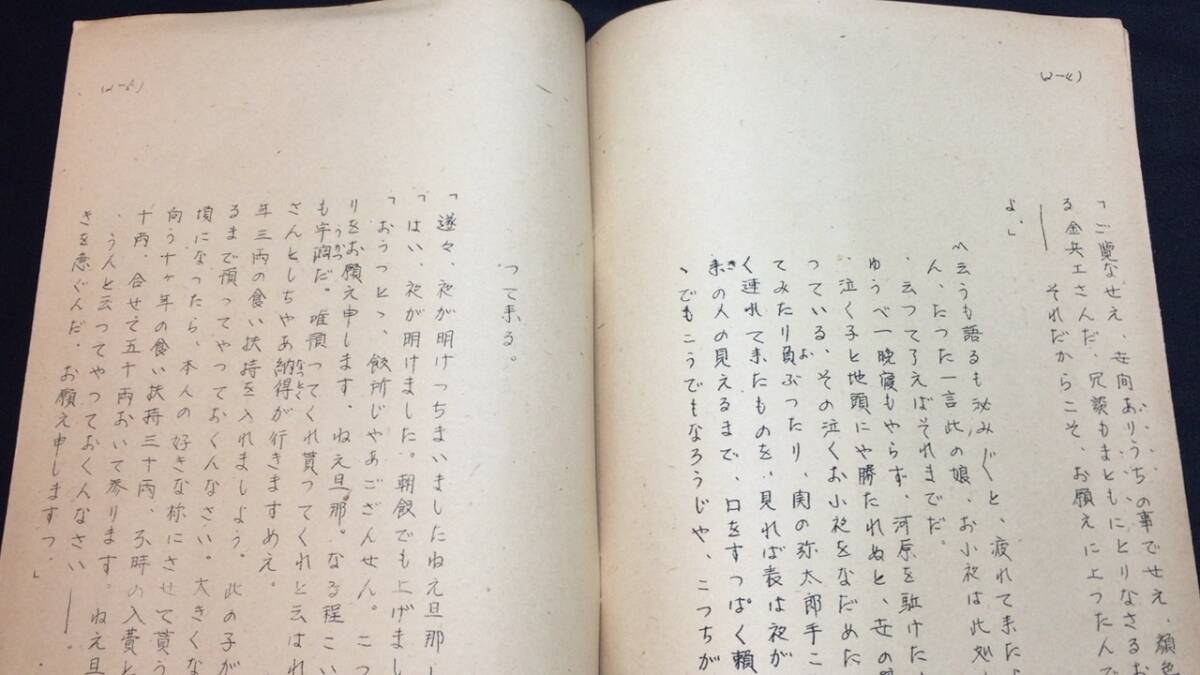 (2-4)
「ご覧なせえ、世間ありうちの事でせえ、顔色
る金兵エさんだ、冗談もまともにとりなさるお
―― それだからこそ、お願えに上ったんで
よ。」
〽云うも語るも泌みじくと、疲れて来た
ん、たった一言此の娘、お小夜は此処
、云って了えばそれまでだ。
ゆうべ一晩寝もやらず、河原を駈けた
、泣く子と地頭にや勝たれぬと、世の
っている、その泣くお小夜をなだめた
てみたり負ぶったり、関の弥太郎手こ
く連れて来たものを、見れば表は夜が
来の人の見えるまで、口をすっぱく頼
、でもこうでもなろうじゃ、こっちが
って来る。
「遂々、夜が明けっちまいましたねえ旦那
「はい、夜が明けました。朝飯でも上げまし
「おうっとっ、飯所じゃあござんせん。こっ
りをお願え申します、ねえ旦那。なる程こい
も宇濶だ。唯預ってくれ貰ってくれと云はれ
さんとしちゃあ納得が行きますめえ。
年三両の食い扶持を入れましょう。此の子が
るまで預ってやっておくんなさい。大きくな
頃になったら、本人の好きな様にさせて貰う
向う十ヶ年の食い扶持三十両、不時の入費と
十両、合せて五十両おいて参ります
、うんと云ってやっておくんなさい―― ねえ旦
きを急ぐんだ、お願え申しますっ。」